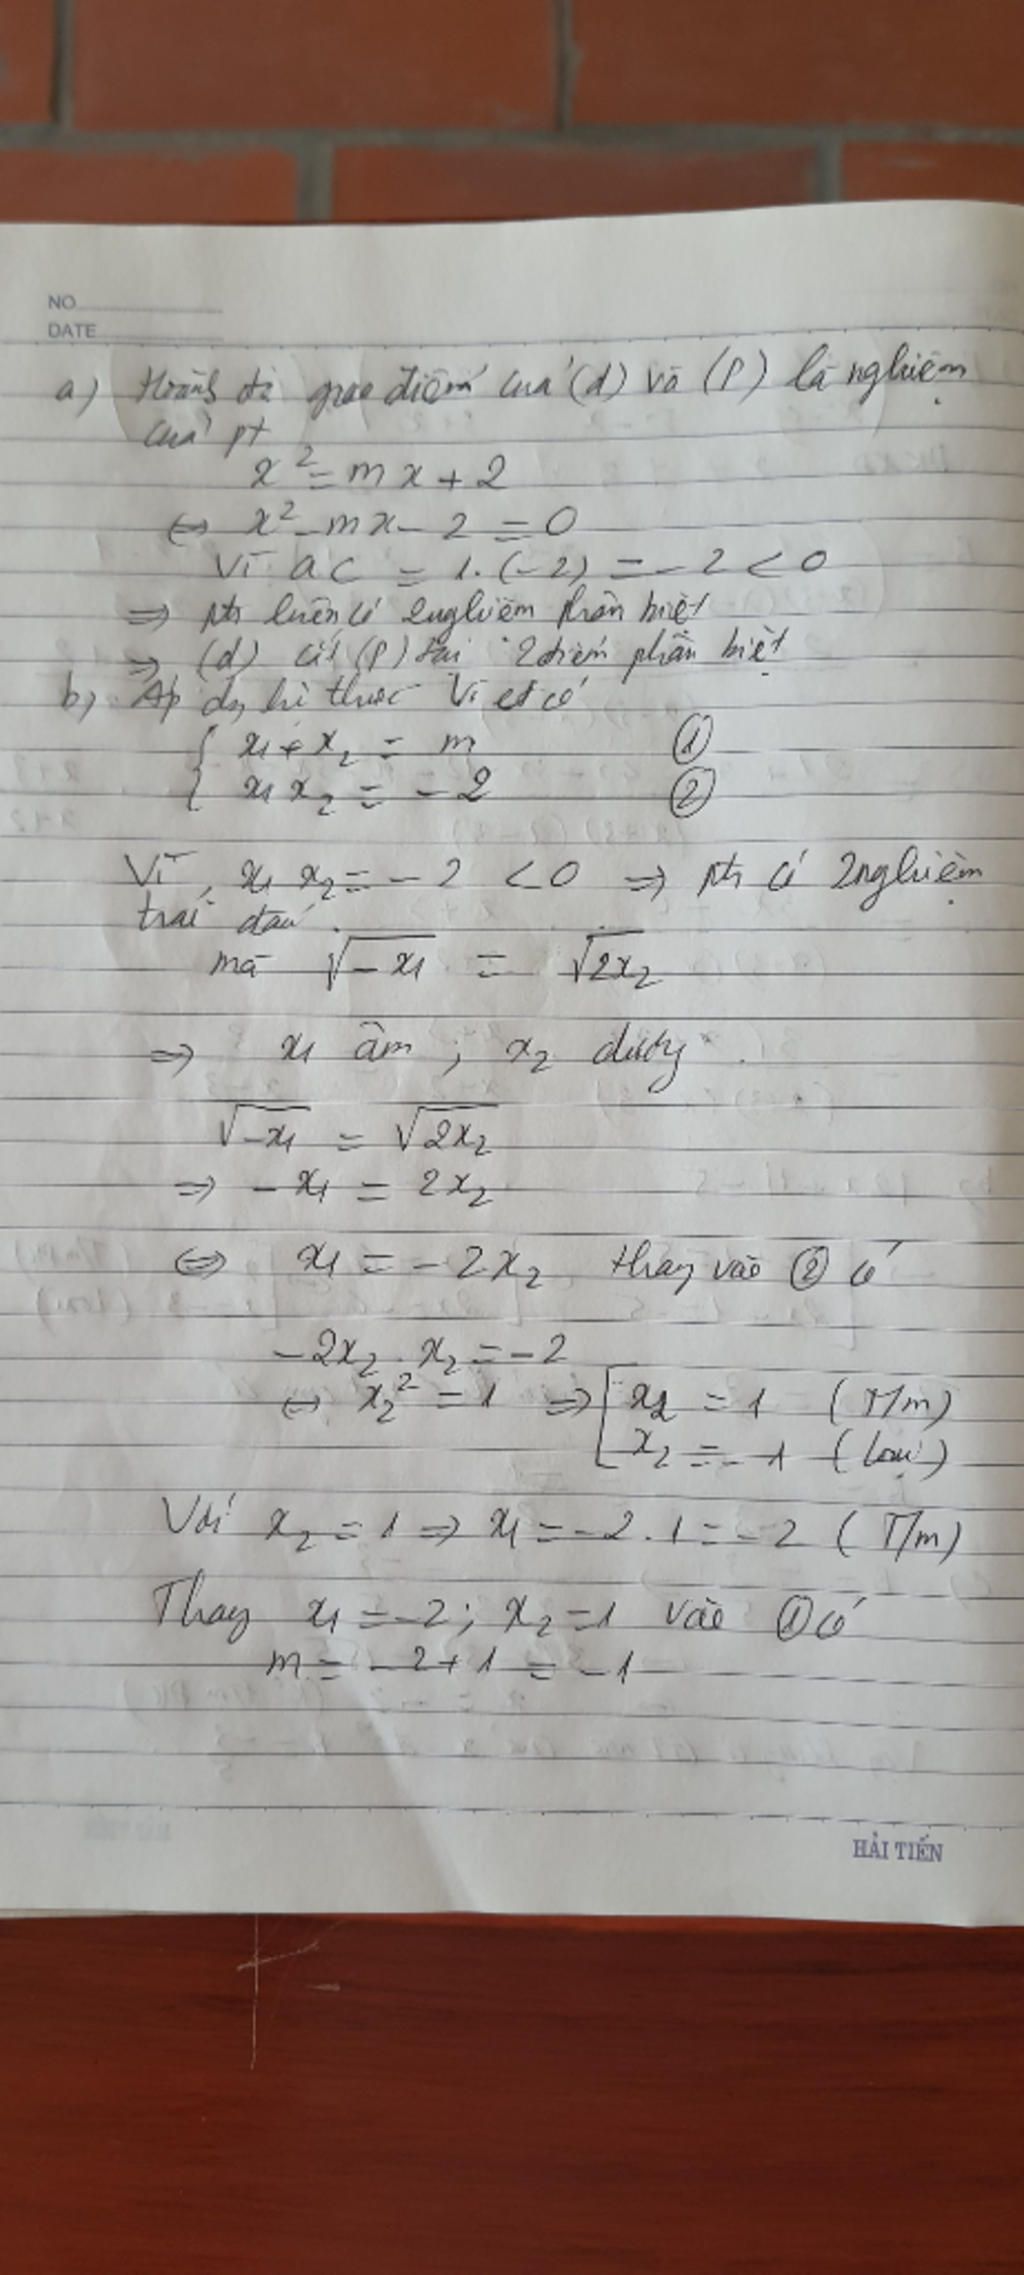 NO
DATE
a) Hoành độ giao điểm của (d) và (P) là nghiệm
của pt
x² = mx + 2
⇔ x² - mx - 2 = 0
Vì ac = 1.(-2) = -2 < 0
⇒ pth luôn có 2 nghiệm phân biệt
⇒ (d) cắt (P) tại 2 điểm phân biệt
b, Áp dg hi thức Vi et có
{ x₁ + x₂ = m ①
{ x₁ x₂ = -2 ②
Vì, x₁ x₂ = -2 < 0 ⇒ pth có 2 nghiệm
trái dấu.
mà √-x₁ = √2x₂
⇒ x₁ âm ; x₂ dương.
√-x₁ = √2x₂
⇒ -x₁ = 2x₂
⇔ x₁ = -2x₂ thay vào ② có
-2x₂ . x₂ = -2
⇔ x₂² = 1 ⇒ [ x₂ = 1 (T/m)
x₂ = -1 (loại)
Với x₂ = 1 ⇒ x₁ = -2 . 1 = -2 (T/m)
Thay x₁ = -2 ; x₂ = 1 vào ① có
m = -2 + 1 = -1
HẢI TIẾN